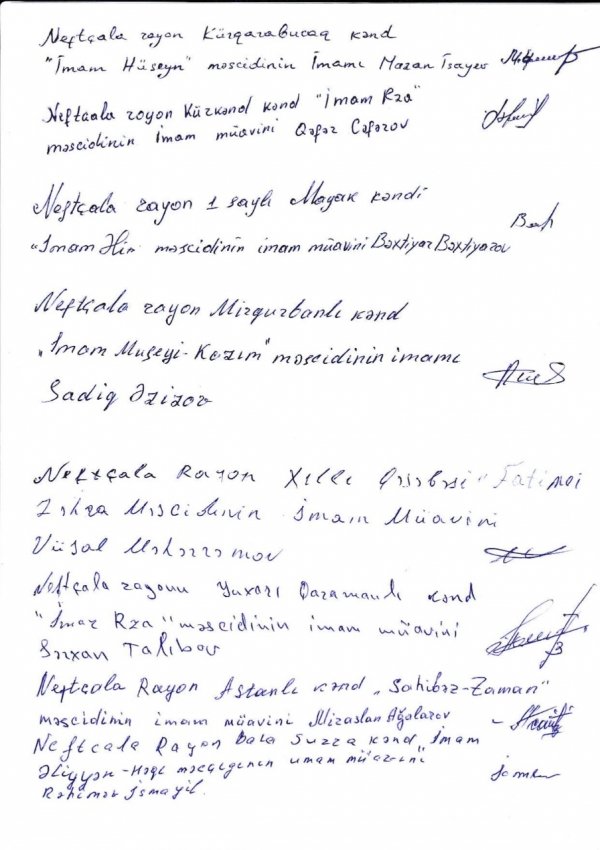 Neftçala rayon Kürqarabucaq kənd
"İmam Hüseyn" məscidinin İmamı Mazan İsayev
Neftcala rayon Kürkənd kənd "İmam Rza"
məscidinin İmam müavini Qəfər Cəfərov
Neftçala rayon 1 saylı Mayak kəndi
"İmam məscidinin imam müavini Bəxtiyar Bəxtiyarov
Neftçala rayon Mirqurbanlı kənd
"İmam Museyi-Kazım" məscidinin imamı
Sadiq Əzizov
Neftçala Rayon Xıllı Qəsəbəsi "Fatimei
Zəhra Məscidinin İmam Müavini
Vüsal Məhərrəmov
Neftçala rayonu Yuxarı Qaramanlı kənd
"İmam Rza" məscidinin imam müavini
Talıbov
Neftçala Rayon Astanlı kənd "Sahibəz-Zaman"
məscidinin imam müavini Miraslan Ağalarov
Neftcala Rayon Bala Surra kənd İmam
müavini
İsmayil.